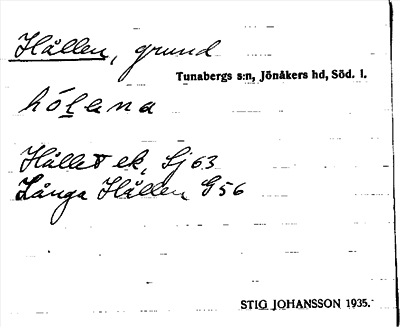 Hållen, grund
Tunabergs s:n, Jönåkers hd, Söd. l.
hólena
Hållet ek, Sj 63
Långa Hållen G 56
STIG JOHANSSON 1935.